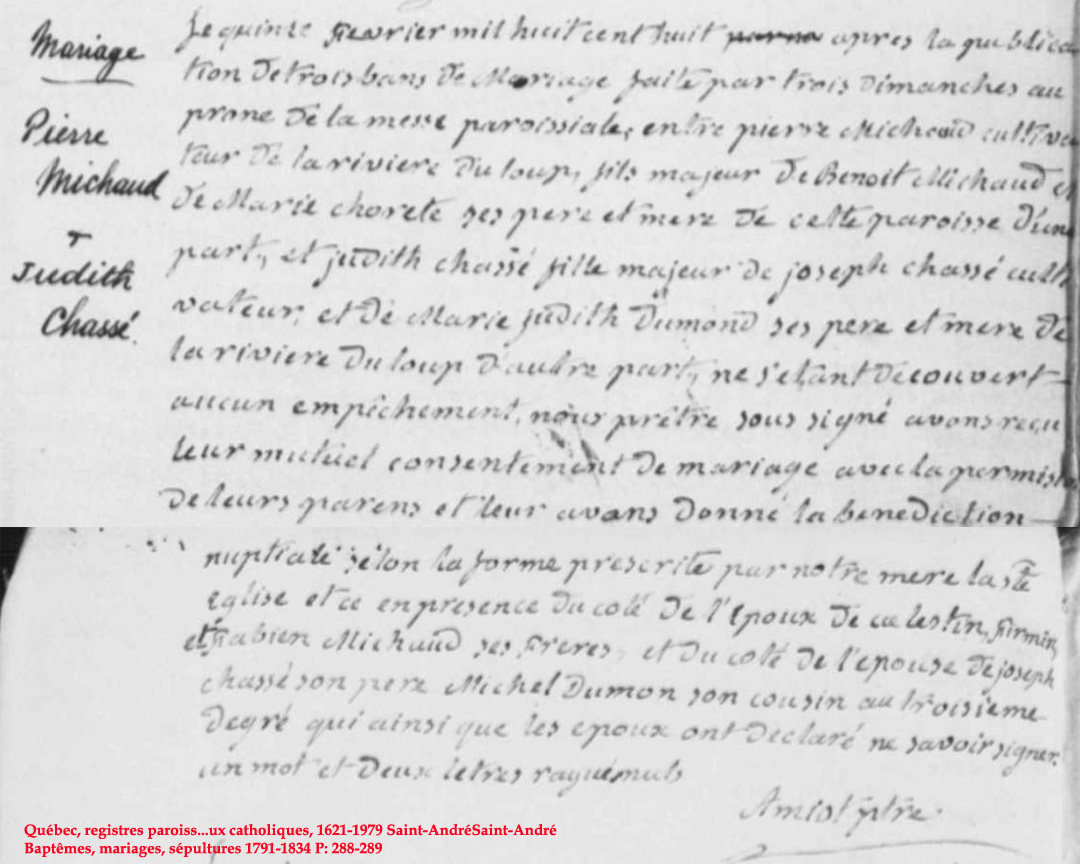 Mariage
Pierre
Michaud
+
Judith
Chassé.
Le quinze Fevrier mil huit cent huit apres la publica
tion de trois bans de Mariage faite par trois dimanches au
prone de la messe paroissiale, entre pierre Michaud cultiva
teur de la riviere du loup, fils majeur de Benoit Michaud et
de Marie chorete ses pere et mere de cette paroisse d'une
part, et judith chassé fille majeur de joseph chassé culti
vateur, et de Marie judith Dumond ses pere et mere de
la riviere du loup d'autre part, ne s'etant decouvert
aucun empêchement, nous prêtre sous signé avons reçu
leur mutuel consentement de mariage avec la permis
de leurs parens et leur avons donné la benediction
nuptiale selon la forme prescrite par notre mere la ste
Eglise et ce en presence du coté de l'Epoux de celestin, firmin,
et Fabien Michaud ses Freres, et du coté de l'epouse de joseph
chassé son pere Michel Dumon son cousin au troisieme
degré qui ainsi que les epoux ont declaré ne savoir signer.
un mot et deux letres rayé nuls
Amiot ptre
Québec, registres paroiss...ux catholiques, 1621-1979 Saint-AndréSaint-André
Baptêmes, mariages, sépultures 1791-1834 P: 288-289